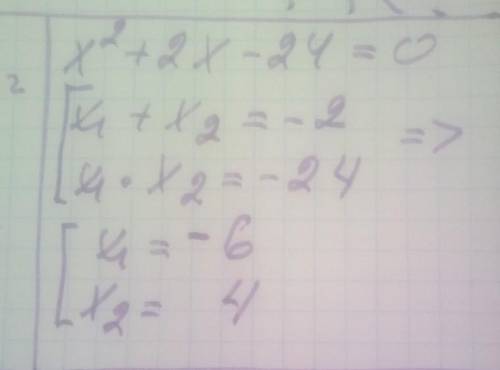 x² + 2x - 24 = 0
2
[x₁ + x₂ = -2
x₁ · x₂ = -24 =>
[x₁ = -6
x₂ = 4